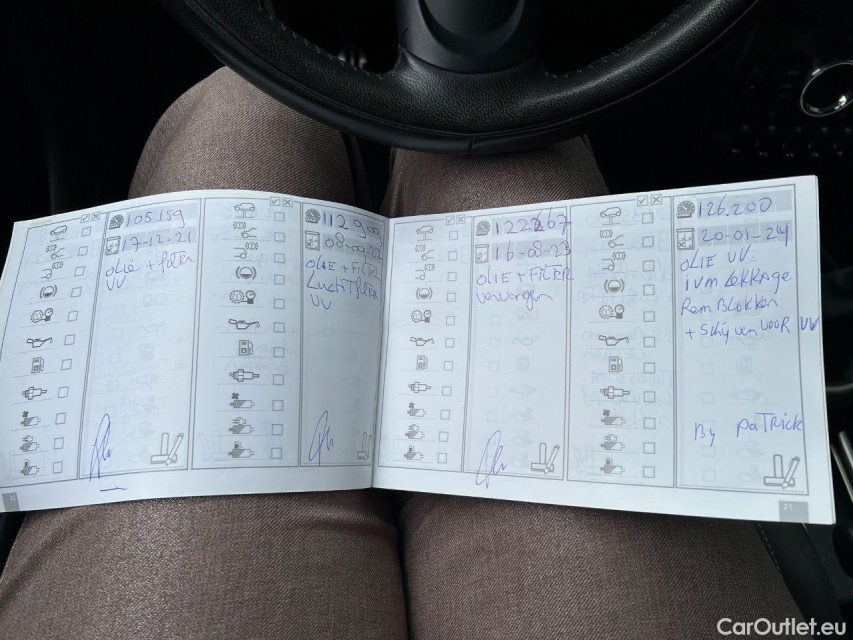 105.159
17-12-21
OLIE + FILTER
UV
112 909
08-09-22
OLIE + FILTER
LUCHTFILTER
UV
16-08-23
OLIE + FILTER
vervangen
126.200
20-01-24
OLIE UV
ivm Lekkage
Rem Blokken
+ Schijven VOOR UV
By PATRICK
21
CarOutlet.eu